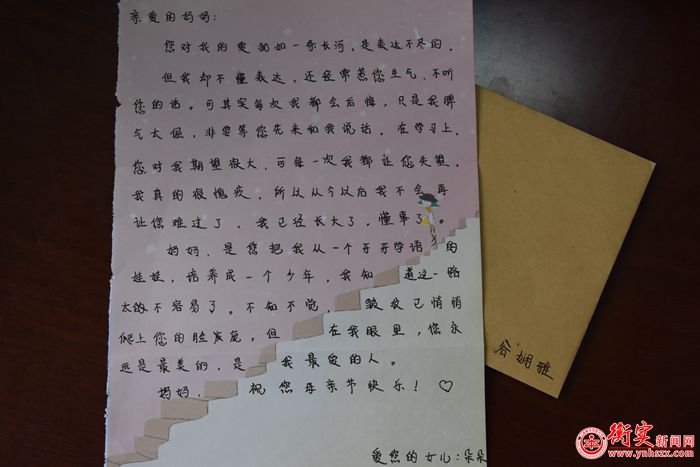 亲爱的妈妈:
您对我的爱犹如一条长河,是表达不尽的.
但我却不懂表达,还经常惹您生气.不听
您的话。可其实每次我都会后悔,只是我脾
气太倔,非要等您先来和我说话。在学习上,
您对我期望很大,可每一次我都让您失望,
我真的很愧疚,所以从今以后我不会再
让您难过了,我已经长大了,懂事了。
妈妈,是您把我从一个牙牙学语的
娃娃,培养成一个少年,我知道这一路
太的不容易了。不知不觉,皱纹已悄悄
爬上您的脸庞,但在我眼里,您永
远是最美的,是我最爱的人。
妈妈,祝您母亲节快乐!♡
爱您的女儿:朵朵
谷娴雅
衡实新闻网
www.ynhszx.com